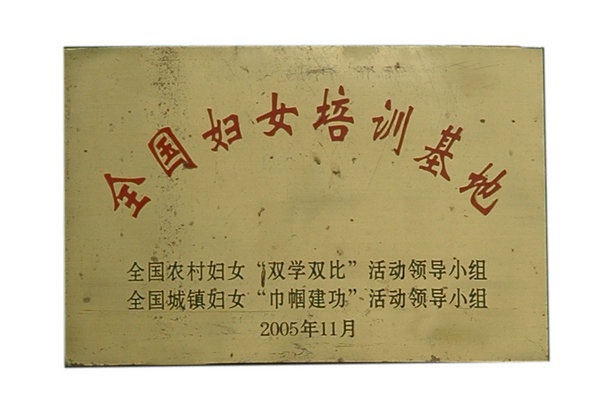 全国妇女培训基地
全国农村妇女“双学双比”活动领导小组
全国城镇妇女“巾帼建功”活动领导小组
2005年11月